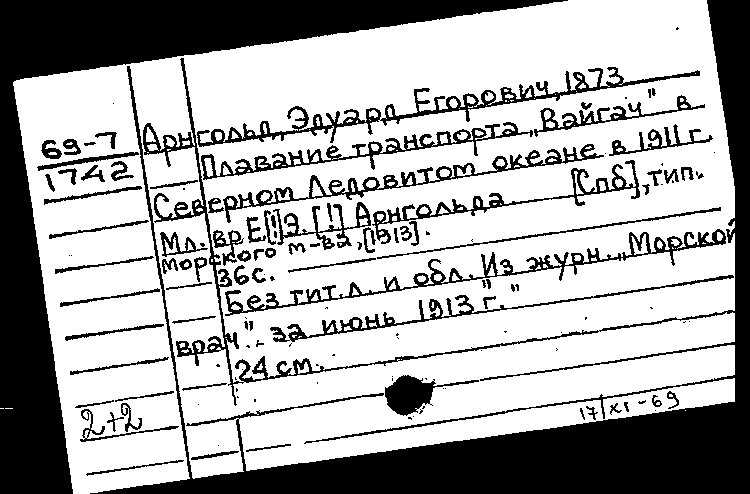 69-7
1742
Арнгольд, Эдуард Егорович, 1873
Плавание транспорта „Вайгач" в
Северном Ледовитом океане в 1911 г.
Мл. вр Е[!]Э. [!] Арнгольда. [Спб], тип.
морского м-ва, [1913].
36с.
Без тит.л. и обл. Из журн. „Морской
врач" за июнь 1913 "г."
24 см.
2+2
17/XI-69